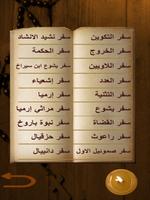 سفر التكوين
سفر الخروج
سفر اللاويين
سفر العدد
سفر التثنية
سفر يشوع
سفر القضاة
سفر راعوث
سفر صموئيل الاول
سفر نشيد الانشاد
سفر الحكمة
سفر يشوع ابن سيراخ
سفر إشعياء
سفر إرميا
سفر مراثي إرميا
سفر نبوة باروخ
سفر حزقيال
سفر دانييال